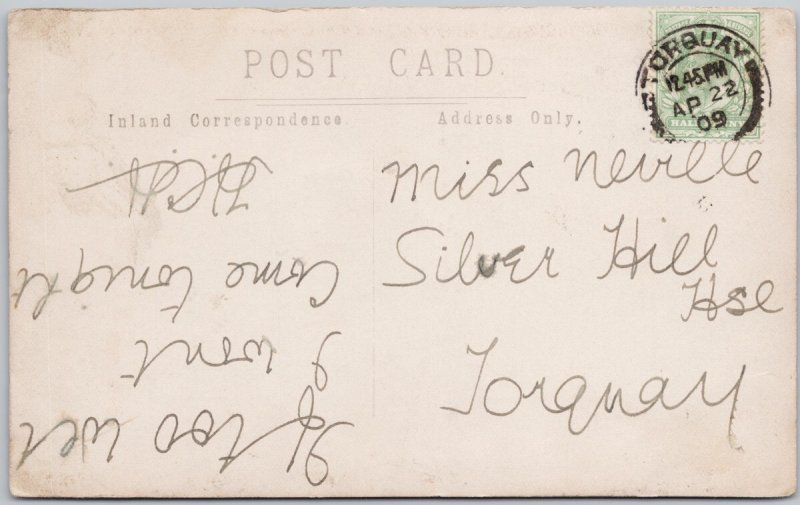 POST CARD.
Inland Correspondence.
Address Only.
TORQUAY
12.45PM
AP 22
09
HALFPENNY
Miss Neville
Silver Hill
Hse
Torquay
If too wet
I wont
Come tonight